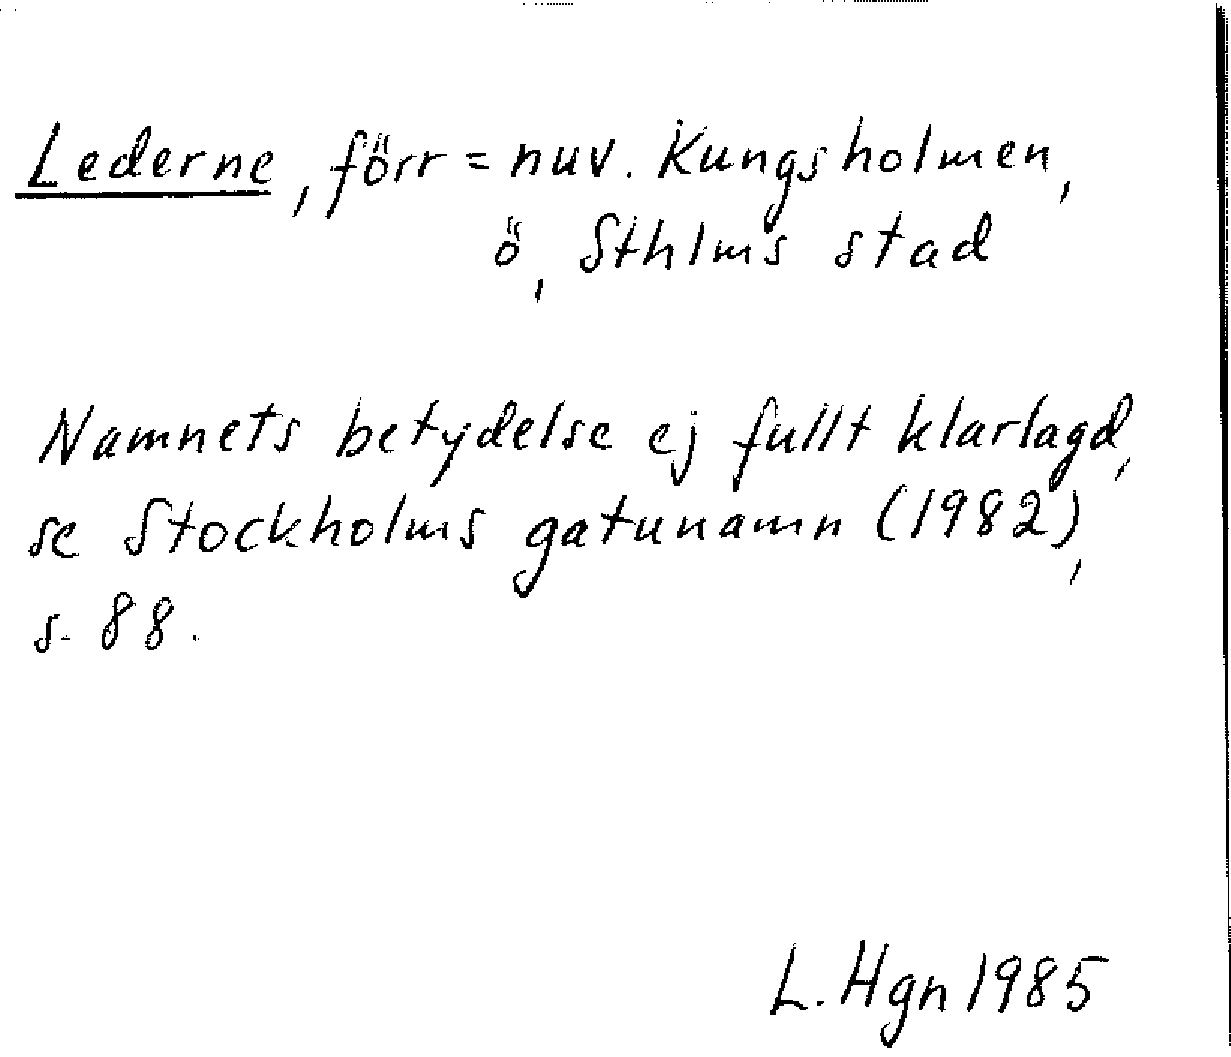 Lederne, förr = nuv. Kungsholmen,
ö, Sthlms stad
Namnets betydelse ej fullt klarlagd,
se Stockholms gatunamn (1982),
s. 88.
L. Hgn 1985